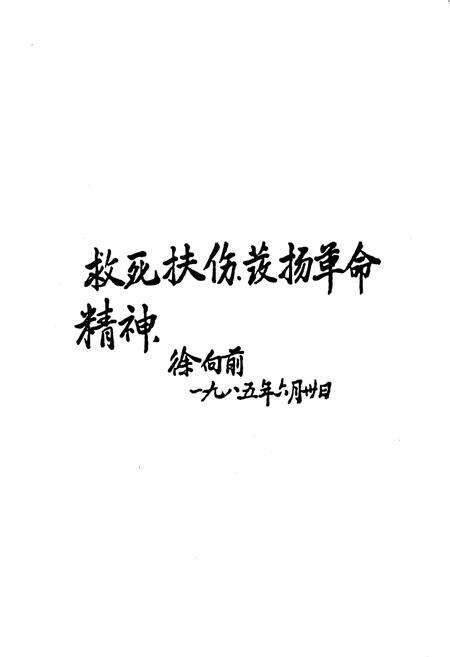 救死扶伤、发扬革命
精神、
徐向前
一九八五年六月卅日